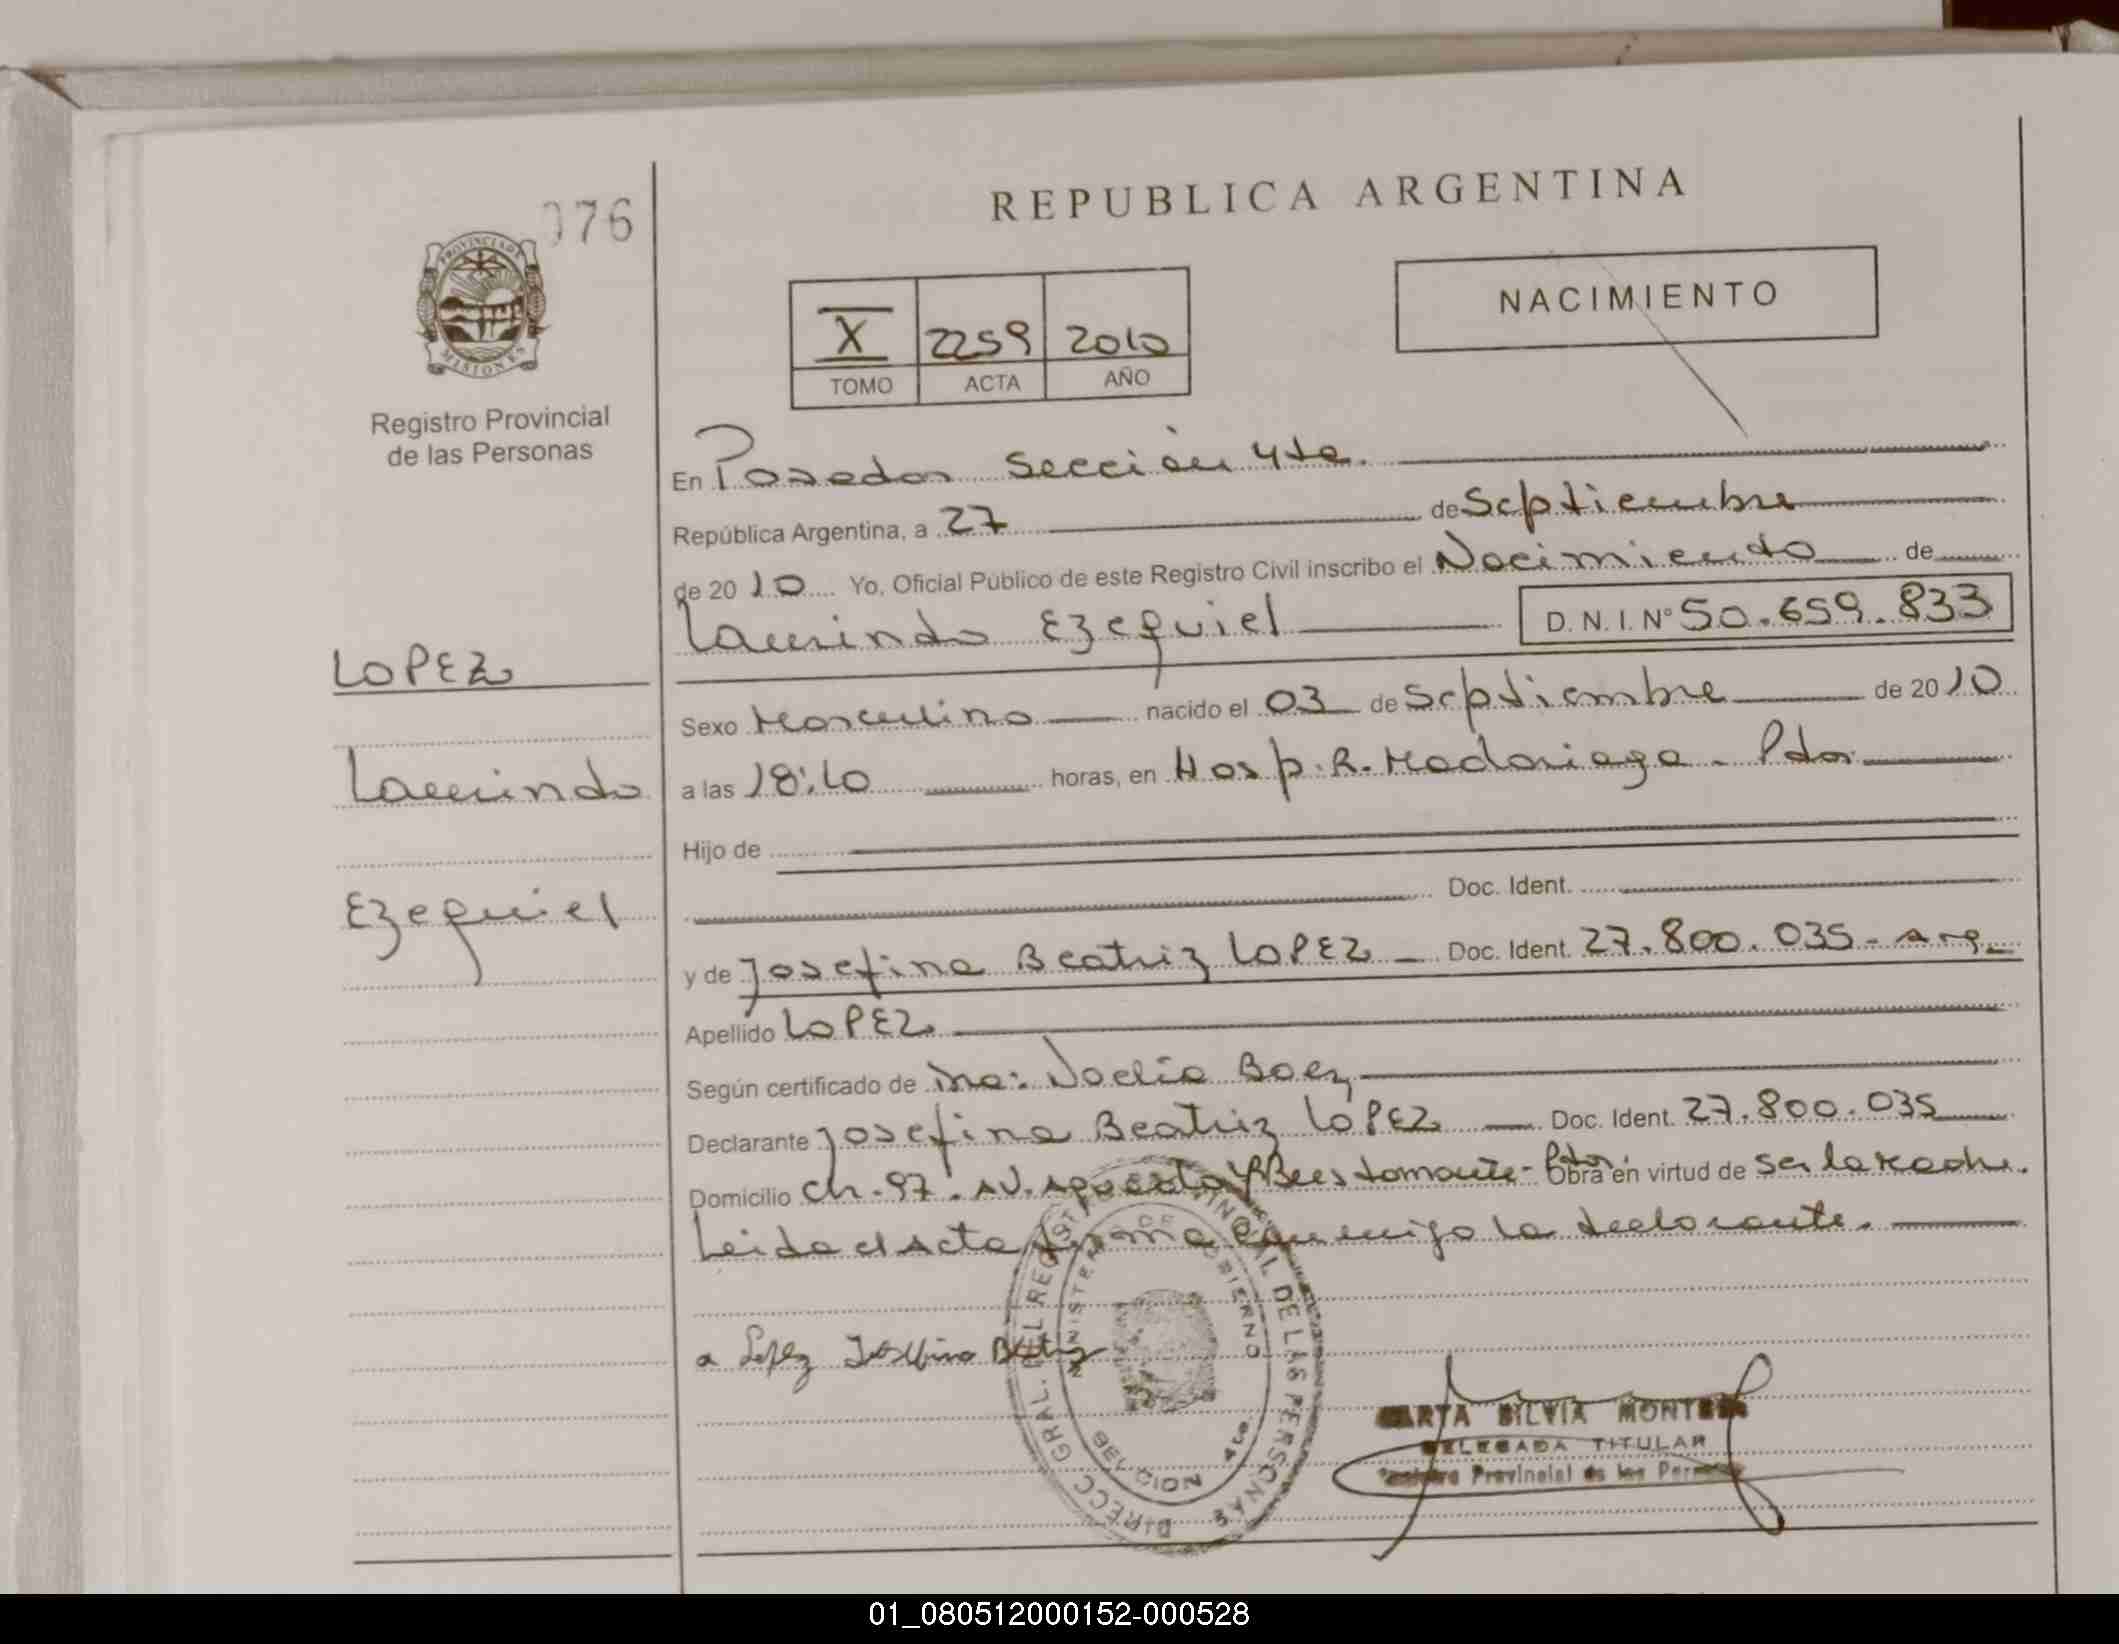 076
PROVINCIA DE
MISIONES
Registro Provincial
de las Personas
REPUBLICA ARGENTINA
NACIMIENTO
X 2259 2010
TOMO ACTA AÑO
En Posadas Sección 4ta.
República Argentina, a 27 de Septiembre
de 2010 Yo, Oficial Público de este Registro Civil inscribo el Nacimiento de
Laurindo Ezequiel D.N.I. Nº 50.659.833
LOPEZ
Laurindo
Ezequiel
Sexo Masculino nacido el 03 de Septiembre de 2010
a las 18:10 horas, en Hosp. R. Madariaga - Pdas.
Hijo de
Doc. Ident.
y de Josefina Beatriz LOPEZ - Doc. Ident. 27.800.035 - Arg.
Apellido LOPEZ
Según certificado de Noelia Baez
Declarante Josefina Beatriz LOPEZ Doc. Ident. 27.800.035
Domicilio Ch. 97. AV. Pdas. Obra en virtud de ser la Madre.
Leida el Acta firma conmigo la declarante.
Lopez Josefina Beatriz
DIRECC. GRAL. DEL REGISTRO PROVINCIAL DE LAS PERSONAS
MINISTERIO DE GOBIERNO
4ta
MARTA SILVIA
DELEGADA TITULAR
Registro Provincial de las Personas
01_080512000152-000528